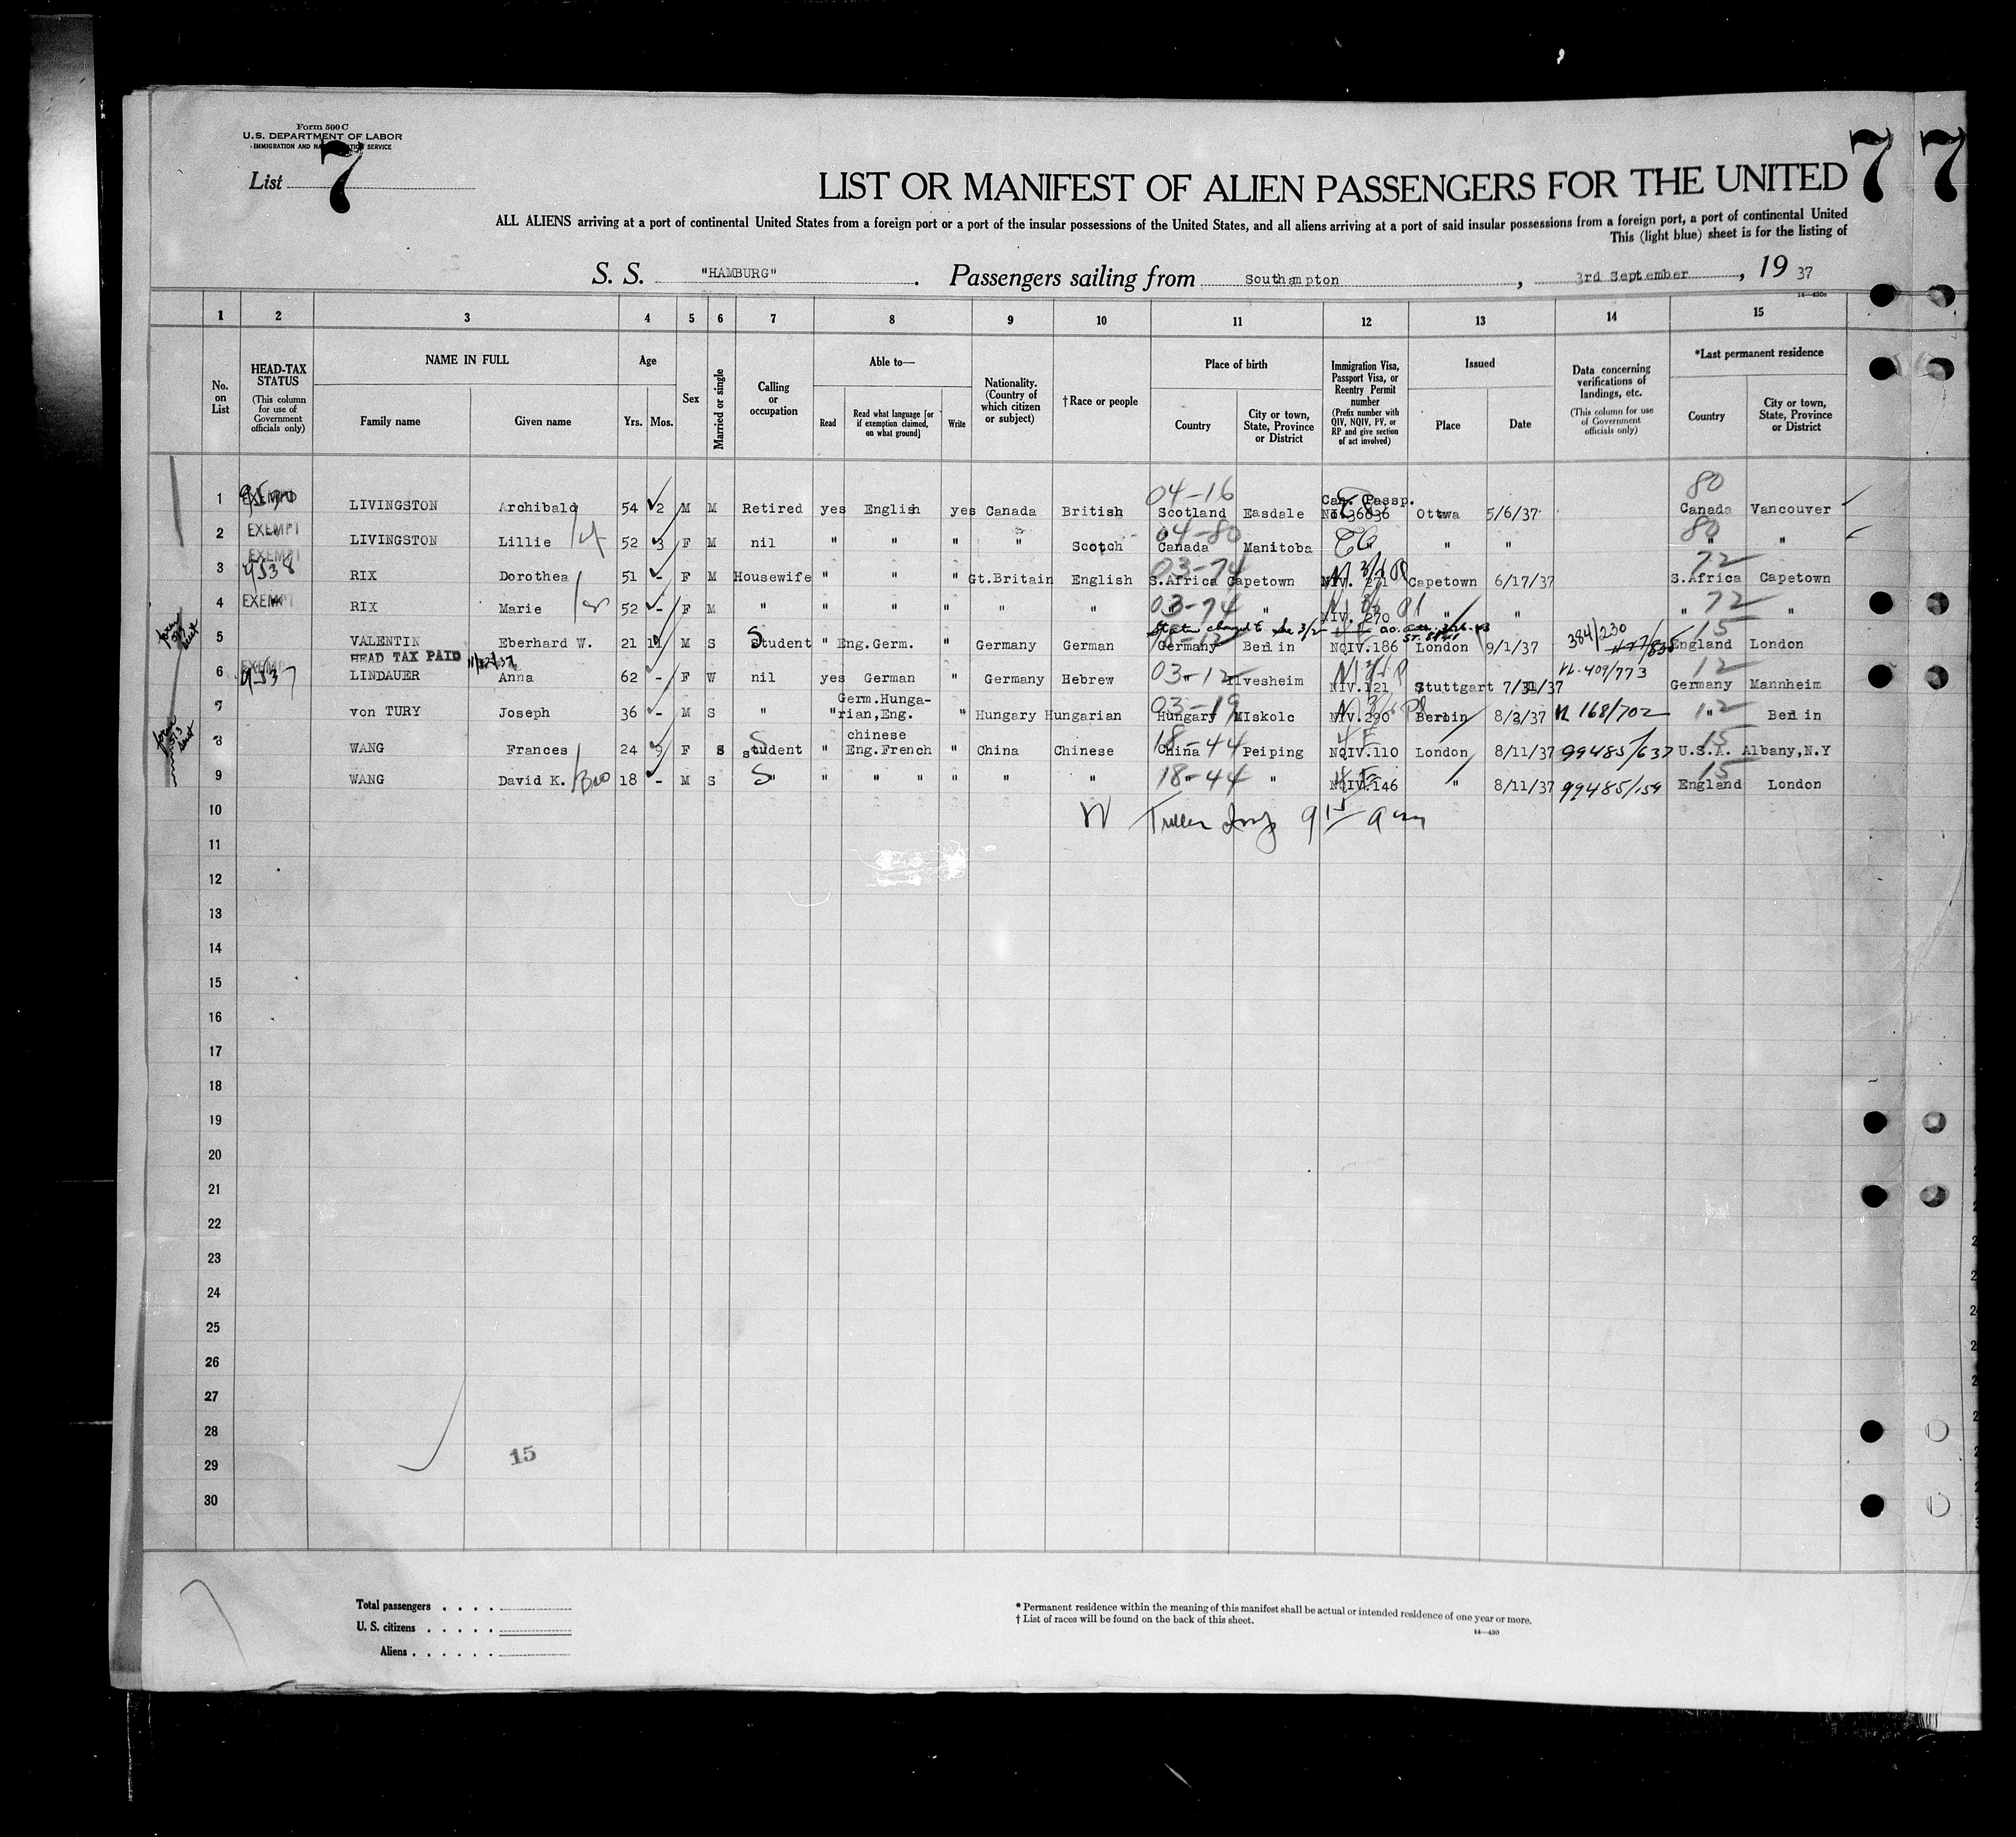 Form 500 C
U.S. DEPARTMENT OF LABOR
IMMIGRATION AND SERVICE
List 7
7 7
LIST OR MANIFEST OF ALIEN PASSENGERS FOR THE UNITED
ALL ALIENS arriving at a port of continental United States from a foreign port or a port of the insular possessions of the United States, and all aliens arriving at a port of said insular possessions from a foreign port, a port of continental United
This (light blue) sheet is for the listing of
S. S. "HAMBURG" . Passengers sailing from Southampton , 3rd September , 19 37
1 2 3 4 5 6 7 8 9 10 11 12 13 14 15
No. on List
HEAD-TAX STATUS (This column for use of Government officials only)
NAME IN FULL
Family name
Given name
Age
Yrs. Mos.
Sex
Married or single
Calling or occupation
Able to—
Read
Read what language [or if exemption claimed, on what ground]
Write
Nationality. (Country of which citizen or subject)
†Race or people
Place of birth
Country
City or town, State, Province or District
Immigration Visa, Passport Visa, or Reentry Permit number (Prefix number with QIV, NQIV, PV, or RP and give section of act involved)
Issued
Place
Date
Data concerning verifications of landings, etc. (This column for use of Government officials only)
*Last permanent residence
Country
City or town, State, Province or District
04-16 Can. Passp. 80
1 EXEMPT LIVINGSTON Archibald 54 2 M M Retired yes English yes Canada British Scotland Easdale Ottawa 5/6/37 Canada Vancouver
04-80 80
2 EXEMPT LIVINGSTON Lillie 52 3 F M nil " " " " Scotch Canada Manitoba " " " "
EXEMPT 03-74 72
3 RIX Dorothea 51 - F M Housewife " " " Gt.Britain English S.Africa Capetown NIV. 271 Capetown 6/17/37 S.Africa Capetown
03-74 72
4 EXEMPT RIX Marie 52 - F M " " " " " " " " NIV. 270 " " " "
15
5 VALENTIN Eberhard W. 21 11 M S Student " Eng.Germ. " Germany German Germany Berlin NQIV.186 London 9/1/37 384/230 England London
HEAD TAX PAID
03-12 12
6 LINDAUER Anna 62 - F W nil yes German " Germany Hebrew " Ilvesheim NIV.121 Stuttgart 7/31/37 409/773 Germany Mannheim
Germ.Hunga- 03-19 12
7 von TURY Joseph 36 - M S " " rian,Eng. " Hungary Hungarian Hungary MIskolc NIV.290 Berlin 8/3/37 168/702 " Berlin
chinese 18-44 15
8 WANG Frances 24 9 F S student " Eng.French " China Chinese China Peiping NQIV.110 London 8/11/37 99485/637 U.S.A. Albany,N.Y
18-44 15
9 WANG David K. 18 - M S " " " " " " " " " NQIV.146 " 8/11/37 99485/159 England London
10
11
12
13
14
15
16
17
18
19
20
21
22
23
24
25
26
27
28
29
30
15
Total passengers . . . .
U. S. citizens . . . . .
Aliens . . . . . .
* Permanent residence within the meaning of this manifest shall be actual or intended residence of one year or more.
† List of races will be found on the back of this sheet.
14—430